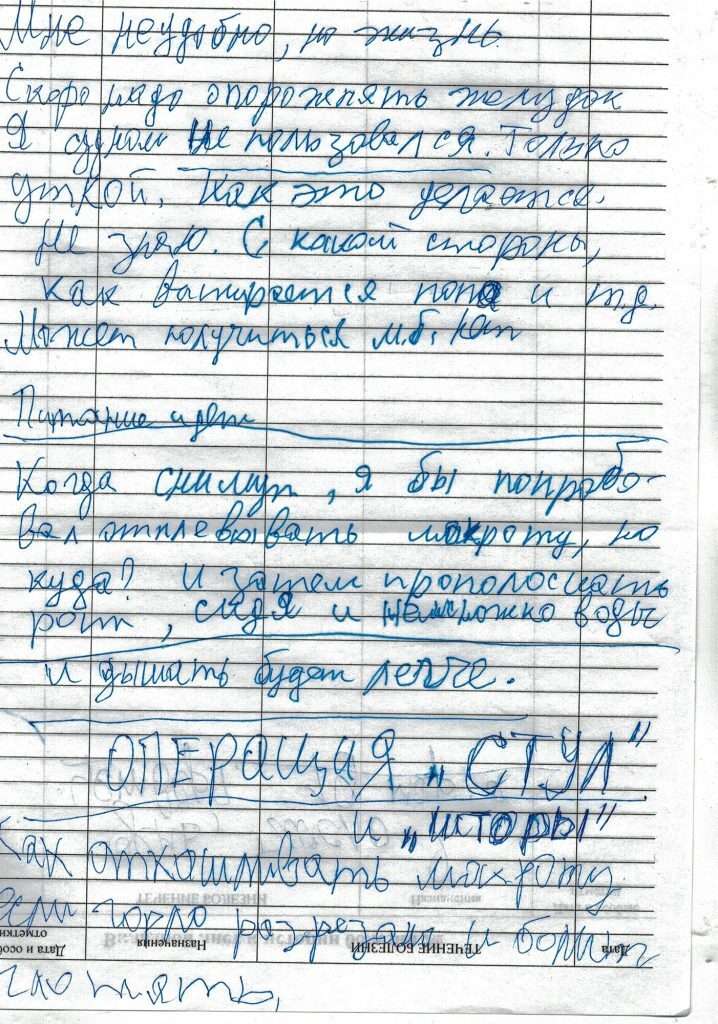 Мне неудобно, но жизнь.
Скоро надо опорожнять желудок
Я судном не пользовался. Только
уткой. Как это делается.
Не знаю. С какой стороны,
как вытирается попа и т.д.
Может получиться м.б. нет
Питание идет
Когда снимут, я бы попробо-
вал отплевывать мокроту, но
куда? И затем прополоскать
рот, сидя и немножко воды
и дышать будет легче.
ОПЕРАЦИЯ „СТУЛ"
и „шторы"
Как откашливать мокроту
если горло разрезано и больно
глотать.
ТЕЧЕНИЕ БОЛЕЗНИ
Назначения
Дата
ТЕЧЕНИЕ БОЛЕЗНИ
Назначения
Дата и особ
отметки